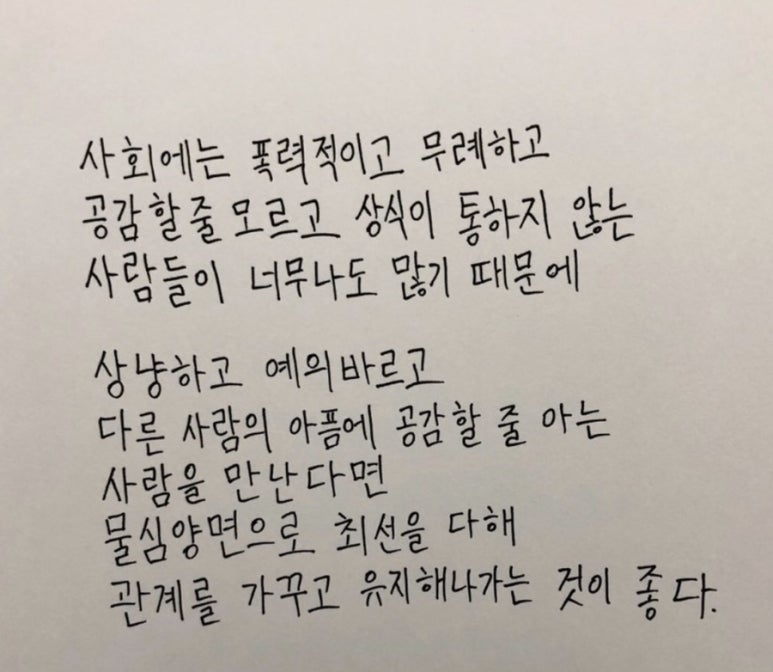 사회에는 폭력적이고 무례하고
공감할줄 모르고 상식이 통하지 않는
사람들이 너무나도 많기 때문에
상냥하고 예의바르고
다른 사람의 아픔에 공감할 줄 아는
사람을 만난다면
물심양면으로 최선을 다해
관계를 가꾸고 유지해나가는 것이 좋다.